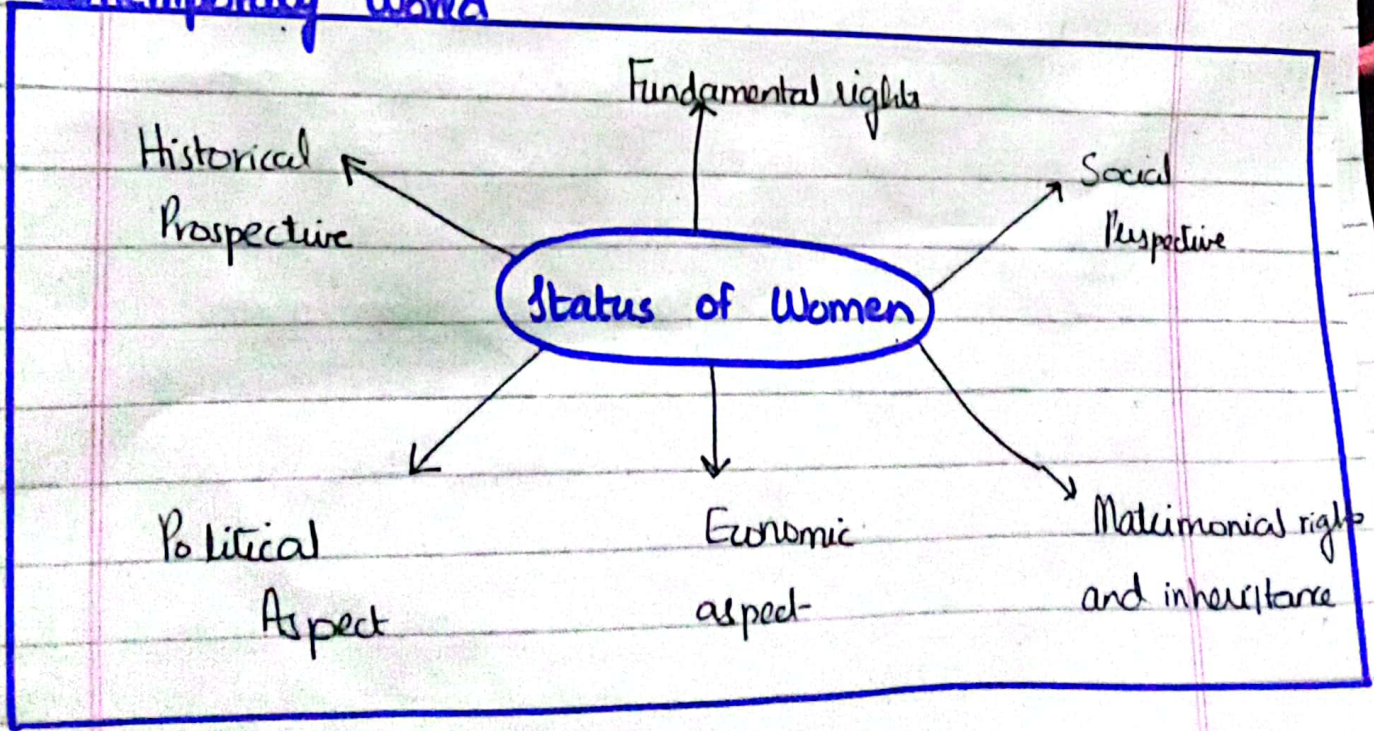 World
Fundamental rights
Historical
Prospective
Social
Perspective
Status of Women
Political
Aspect
Economic
aspect
Matrimonial rights
and inheritance